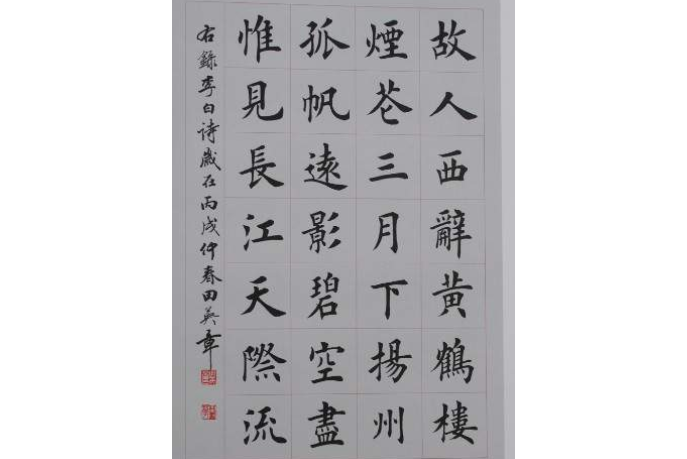 故人西辭黃鶴樓
煙苍三月下揚州
孤帆遠影碧空盡
惟見長江天際流
右録李白诗歲在丙戌仲春田英章